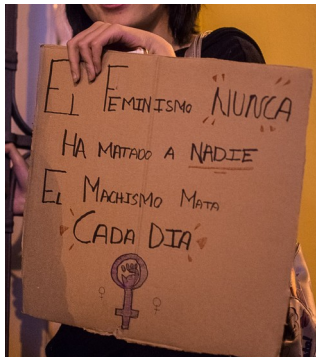 EL FEMINISMO NUNCA
HA MATADO A NADIE
EL MACHISMO MATA
CADA DIA